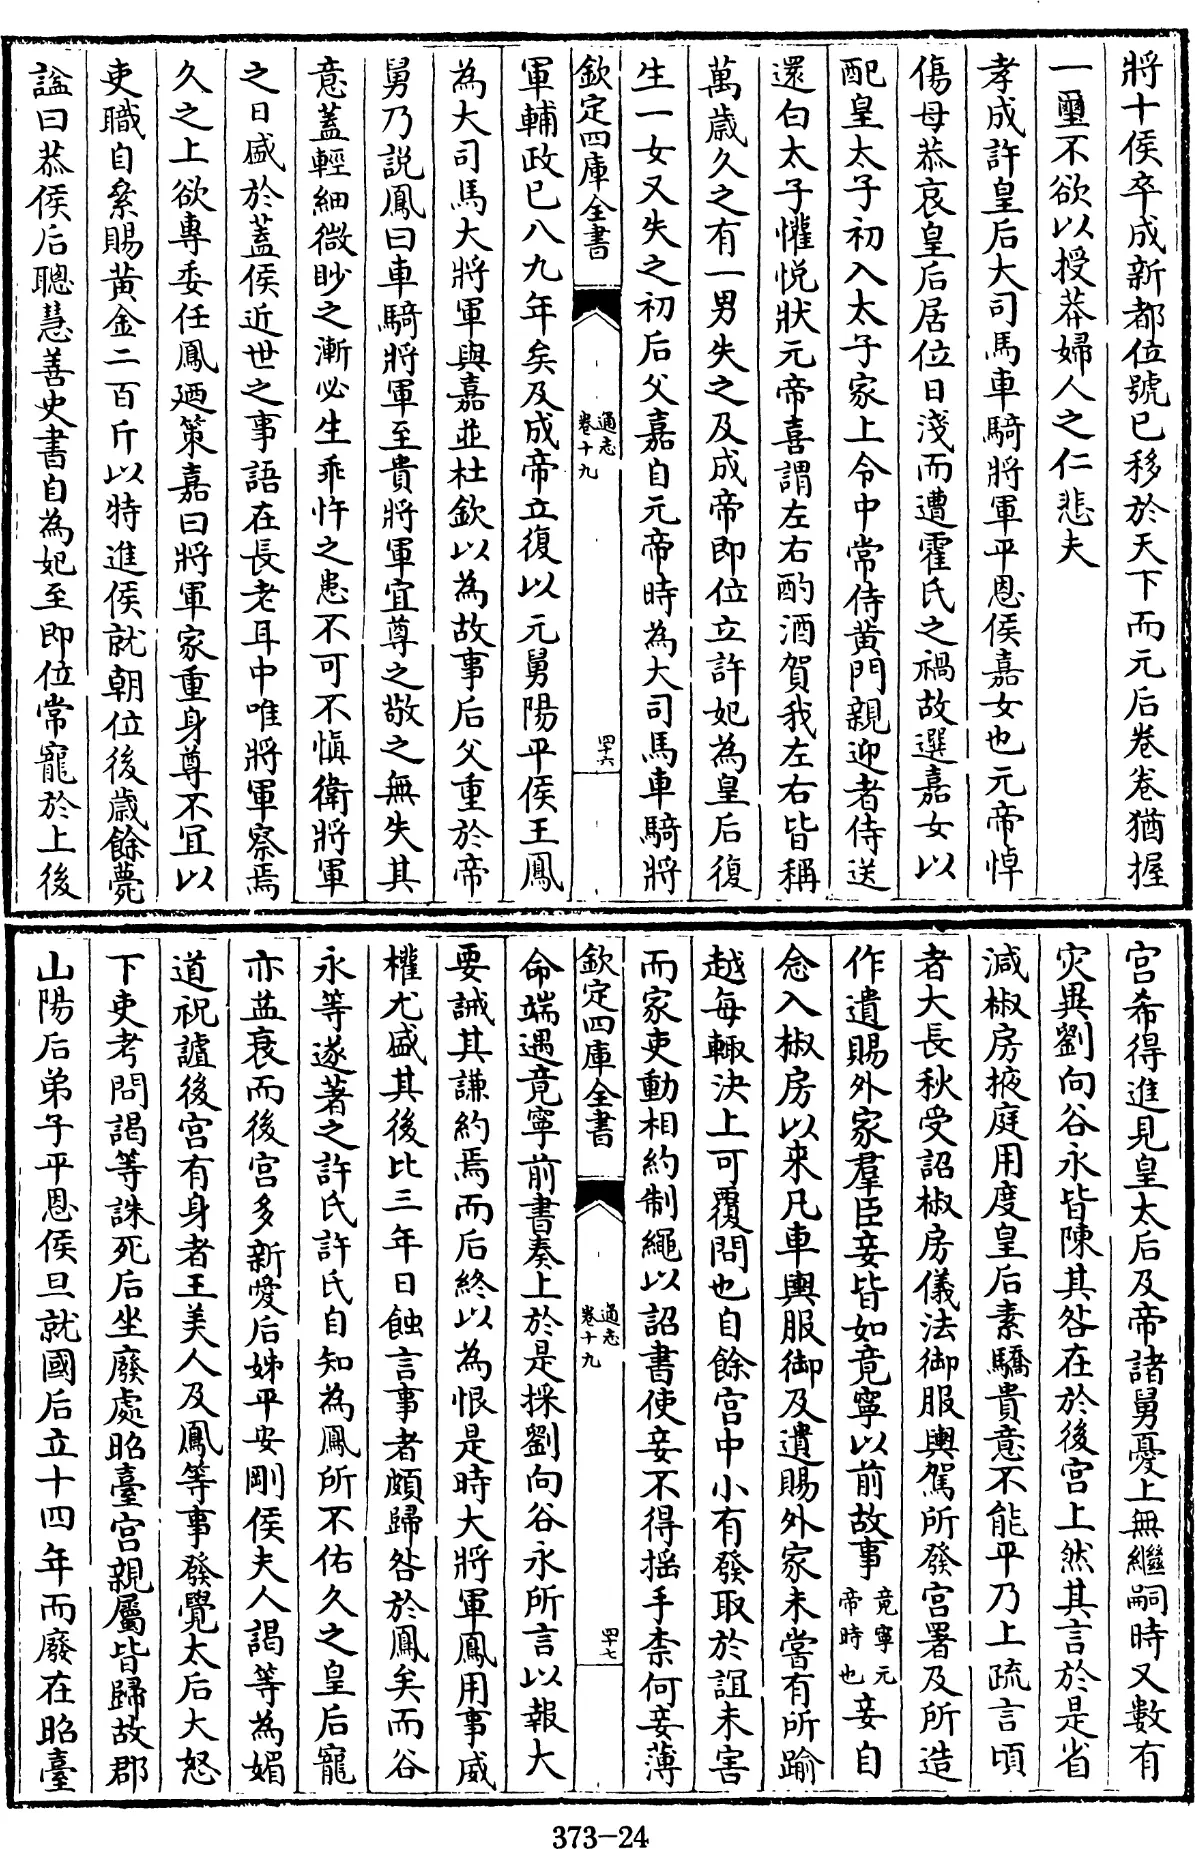 將十侯卒成新都位號已移於天下而元后卷卷猶握
一璽不欲以授莽婦人之仁悲夫
孝成許皇后大司馬車騎將軍平恩侯嘉女也元帝悼
傷母恭哀皇后居位日淺而遭霍氏之禍故選嘉女以
配皇太子初入太子家上令中常侍黄門親迎者侍送
還白太子懽悦狀元帝喜謂左右酌酒賀我左右皆稱
萬歲久之有一男失之及成帝即位立許妃為皇后復
生一女又失之初后父嘉自元帝時為大司馬車騎將
欽定四庫全書
通志
卷十九
四十六
軍輔政已八九年矣及成帝立復以元舅陽平侯王鳳
為大司馬大將軍與嘉並杜欽以為故事后父重於帝
舅乃說鳳曰車騎將軍至貴將軍宜尊之敬之無失其
意蓋輕細微眇之漸必生乖忤之患不可不慎衛將軍
之日盛於蓋侯近世之事語在長老耳中唯將軍察焉
久之上欲專委任鳳廼策嘉曰將軍家重身尊不宜以
吏職自絫賜黄金二百斤以特進侯就朝位後歲餘薨
諡曰恭侯后聰慧善史書自為妃至即位常寵於上後
宫希得進見皇太后及帝諸舅憂上無繼嗣時又數有
災異劉向谷永皆陳其咎在於後宫上然其言於是省
減椒房掖庭用度皇后素驕貴意不能平乃上疏言頃
者大長秋受詔椒房儀法御服輿駕所發宫署及所造
作遺賜外家羣臣妾皆如竟寧以前故事竟寧元帝時也妾自
念入椒房以来凡車輿服御及遺賜外家未嘗有所踰
越每輙決上可覆問也自餘宫中小有發取於誼未害
而家吏動相約制繩以詔書使妾不得揺手柰何妾薄
欽定四庫全書
通志
卷十九
四十七
命端遇竟寧前書奏上於是採劉向谷永所言以報大
要誡其謙約焉而后終以為恨是時大將軍鳳用事威
權尤盛其後比三年日蝕言事者頗歸咎於鳳矣而谷
永等遂著之許氏許氏自知為鳳所不佑久之皇后寵
亦益衰而後宫多新愛后姊平安剛侯夫人謁等為媚
道祝謯後宫有身者王美人及鳳等事發覺太后大怒
下吏考問謁等誅死后坐廢處昭臺宫親屬皆歸故郡
山陽后弟子平恩侯旦就國后立十四年而廢在昭臺
373-24